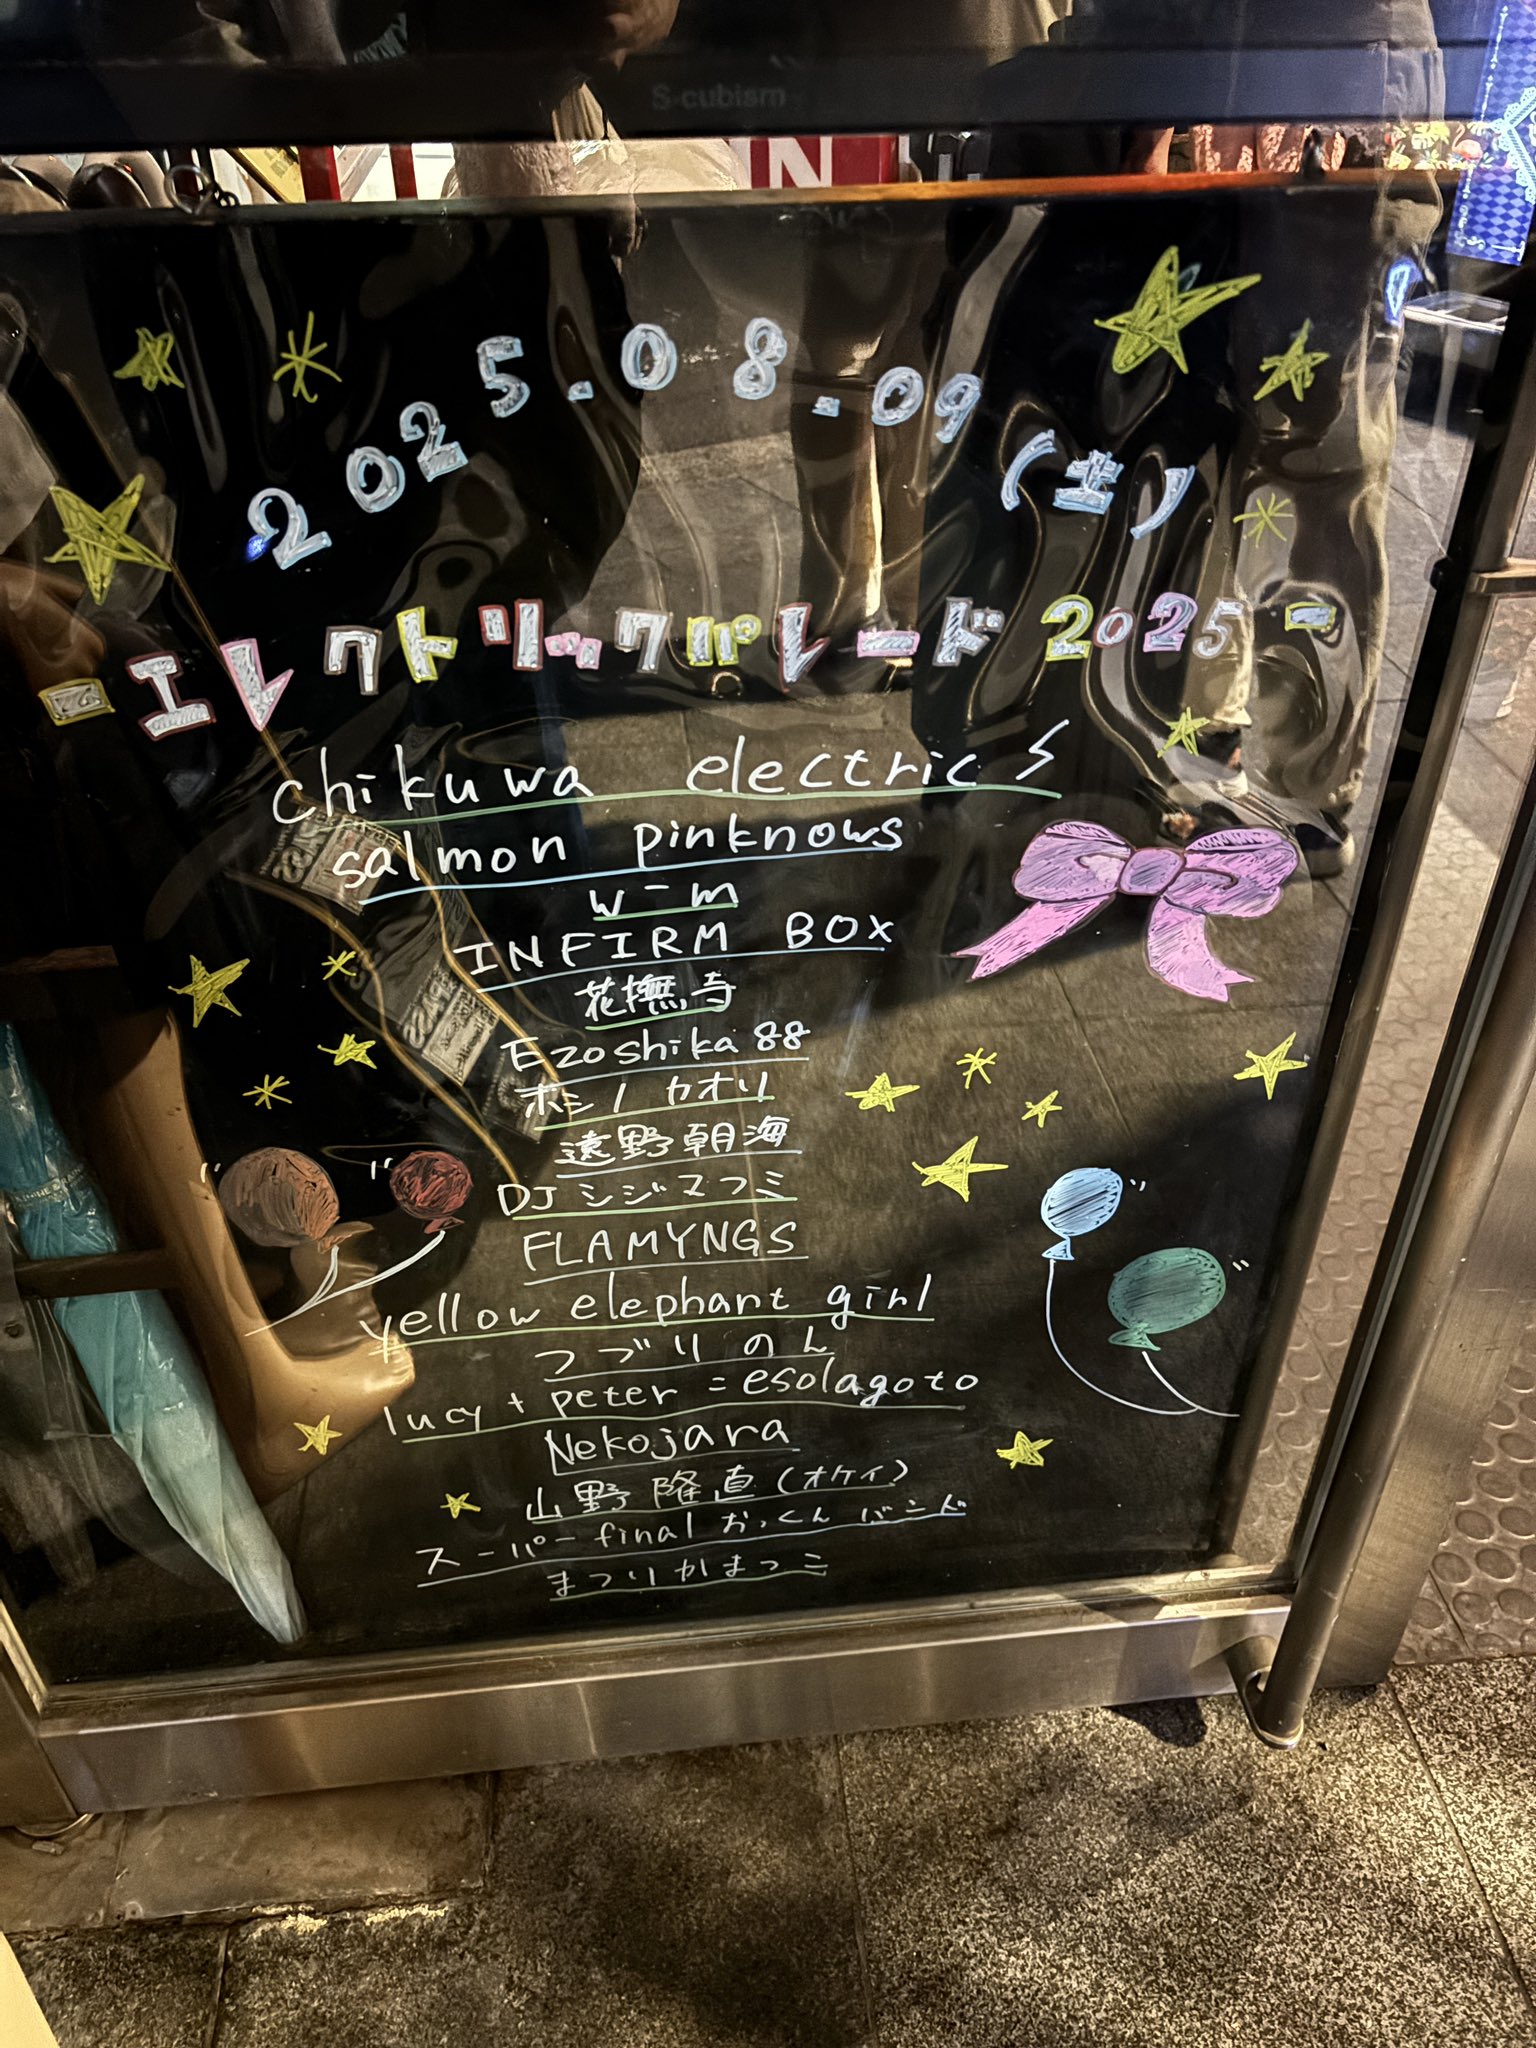 S-cubism
N
2025.08.09 (土)
-エレクトリックパレード2025-
chikuwa electric
salmon pinknows
w-m
INFIRM BOX
花撫寺
Ezoshika88
ホシノカオリ
遠野朝海
DJ シジマフミ
FLAMYNGS
yellow elephant girl
つづりのん
lucy + peter = esolagoto
Nekojara
山野隆直(オケイ)
スーパーfinalおっくんバンド
まつりかまつミ